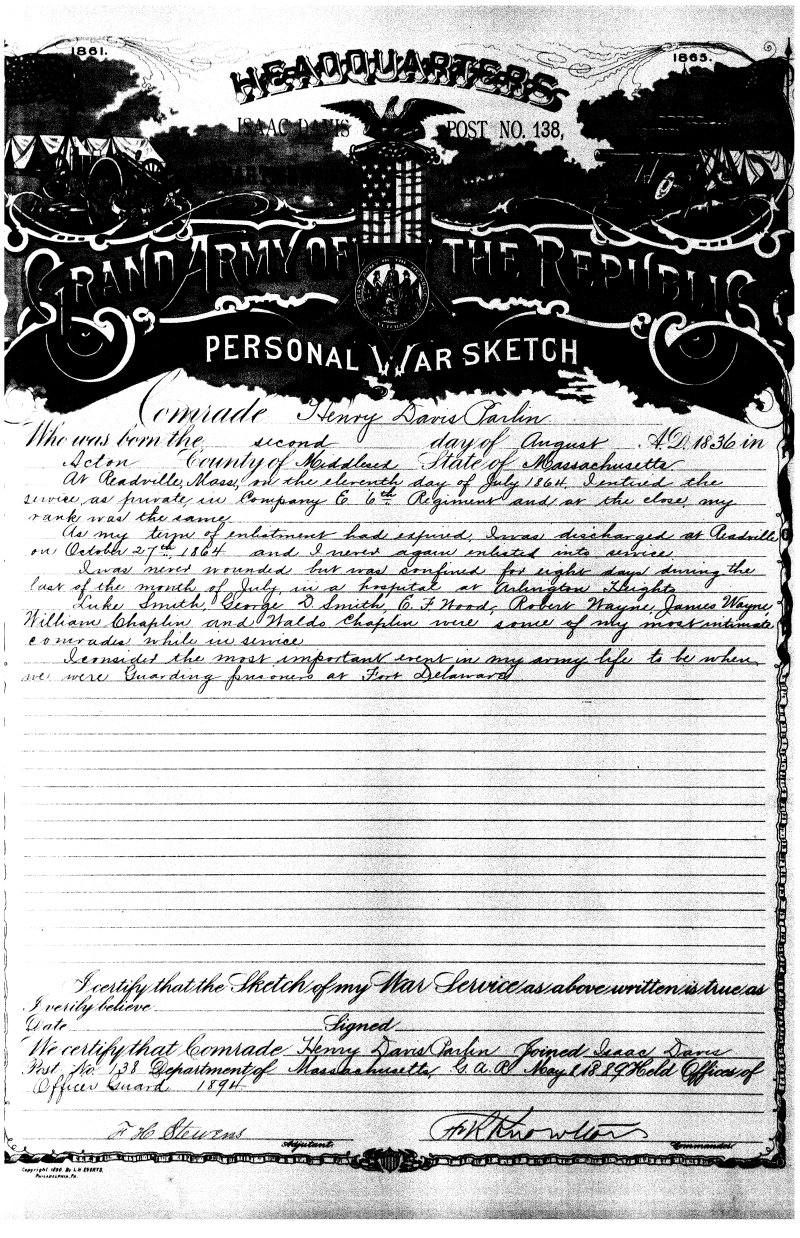 1861.
1865.
HEADQUARTERS
ISAAC DAVIS POST NO. 138,
GRAND ARMY OF THE REPUBLIC
PERSONAL WAR SKETCH
Comrade Henry Davis Parlin
Who was born the second day of August A.D. 1836 in
Acton County of Middlesex State of Massachusetts
At Readville, Mass, on the eleventh day of July 1864, I entired the
service, as private, in Company E 6th Regiment and at the close, my
rank was the same
As my term of enlistment had expired, I was discharged at Readville
on October 27th 1864 and I never again enlisted into service
I was never wounded but was confined for eight days during the
last of the month of July, in a hospital at Arlington Heights
Luke Smith, George D. Smith, E. F. Wood, Robert Wayne, James Wayne,
William Chaplin and Waldo Chaplin were some of my most intimate
comrades while in service
I consider the most important event in my army life to be when
we were Guarding prisoners at Fort Delaware
I certify that the Sketch of my War Service as above written is true as
I verily believe
Date Signed
We certify that Comrade Henry Davis Parlin Joined Isaac Davis
Post No 138 Department of Massachusetts, G.A.R. May 1889 Held Offices of
Officer Guard 1894
F H Stevens
Adjutant
A K Knowlton
Commander
Copyright 1890 By L.H. EVERTS,
PHILADELPHIA, PA.